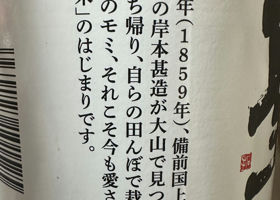 年(1859年)、備前国上
の岸本甚造が大山で見つ
ち帰り、自らの田んぼで栽
のモミ、それこそ今も愛さ
米」のはじまりです。